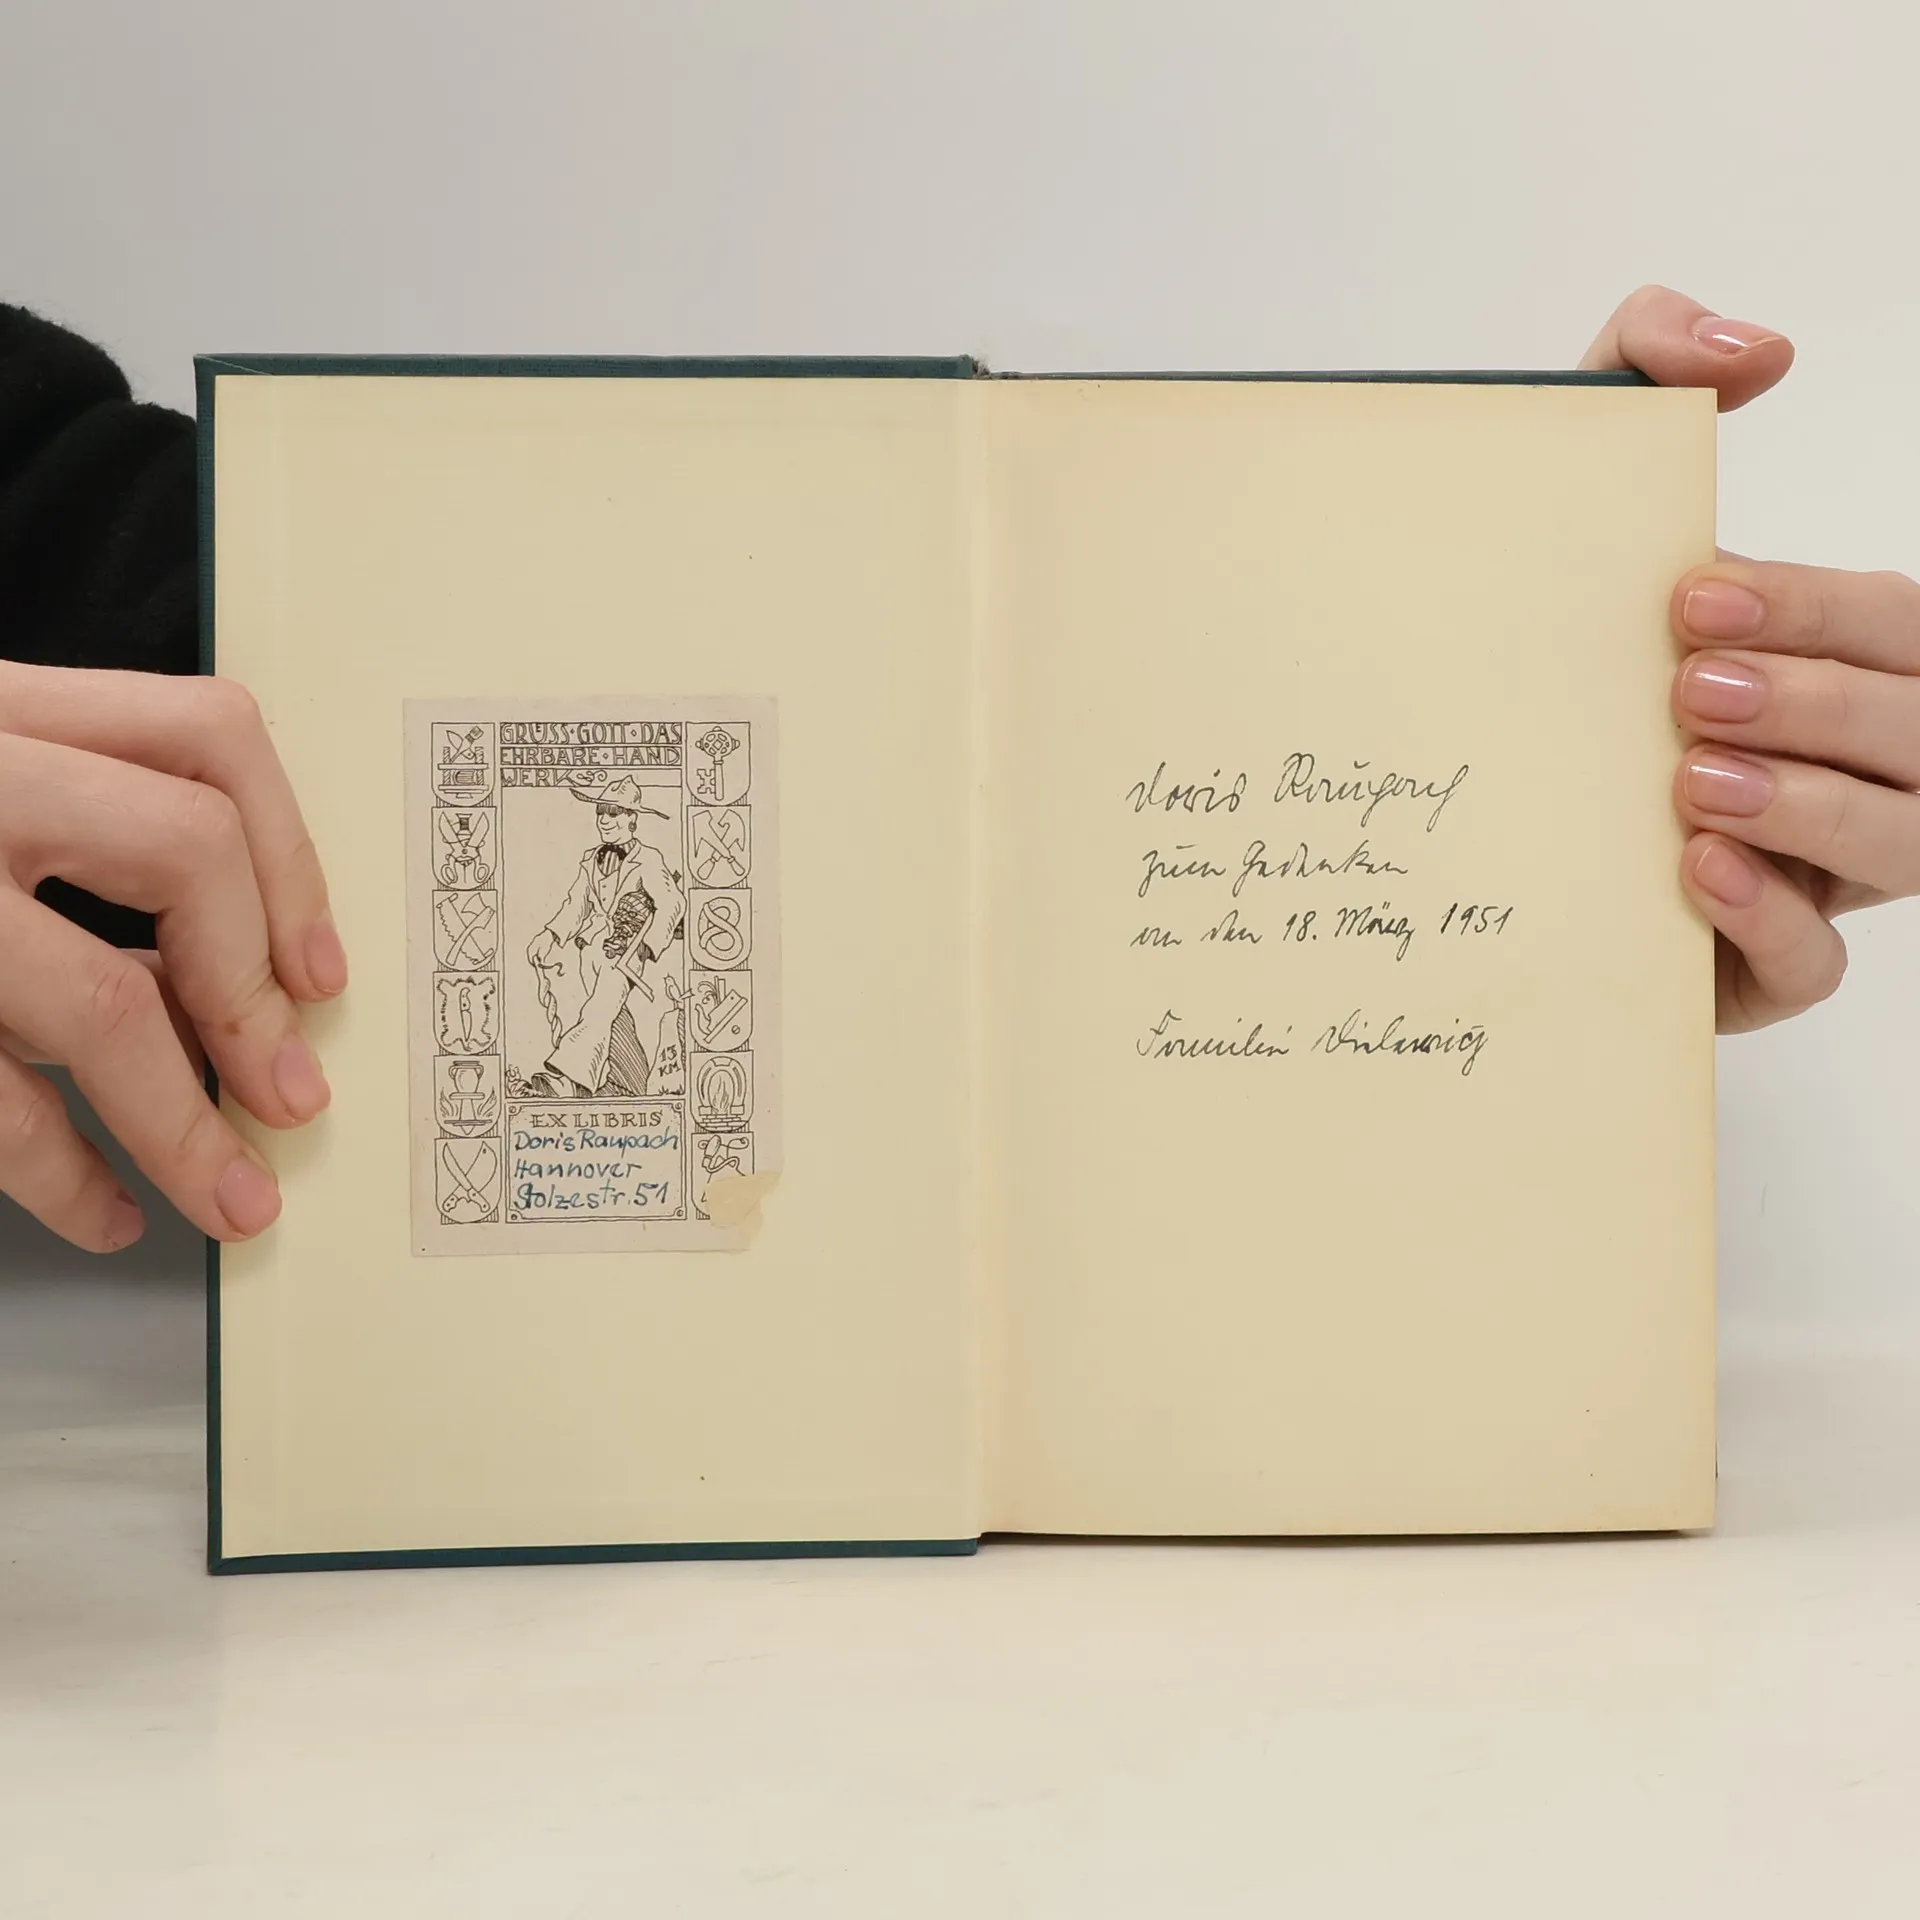 GRÜSS·GOTT·DAS
EHRBARE·HAND
WERK
13
KM
EX LIBRIS
Doris Raupach
Hannover
Stolzestr. 51
Doris Raupach
zum Gedenken
an den 18. März 1951
Familie